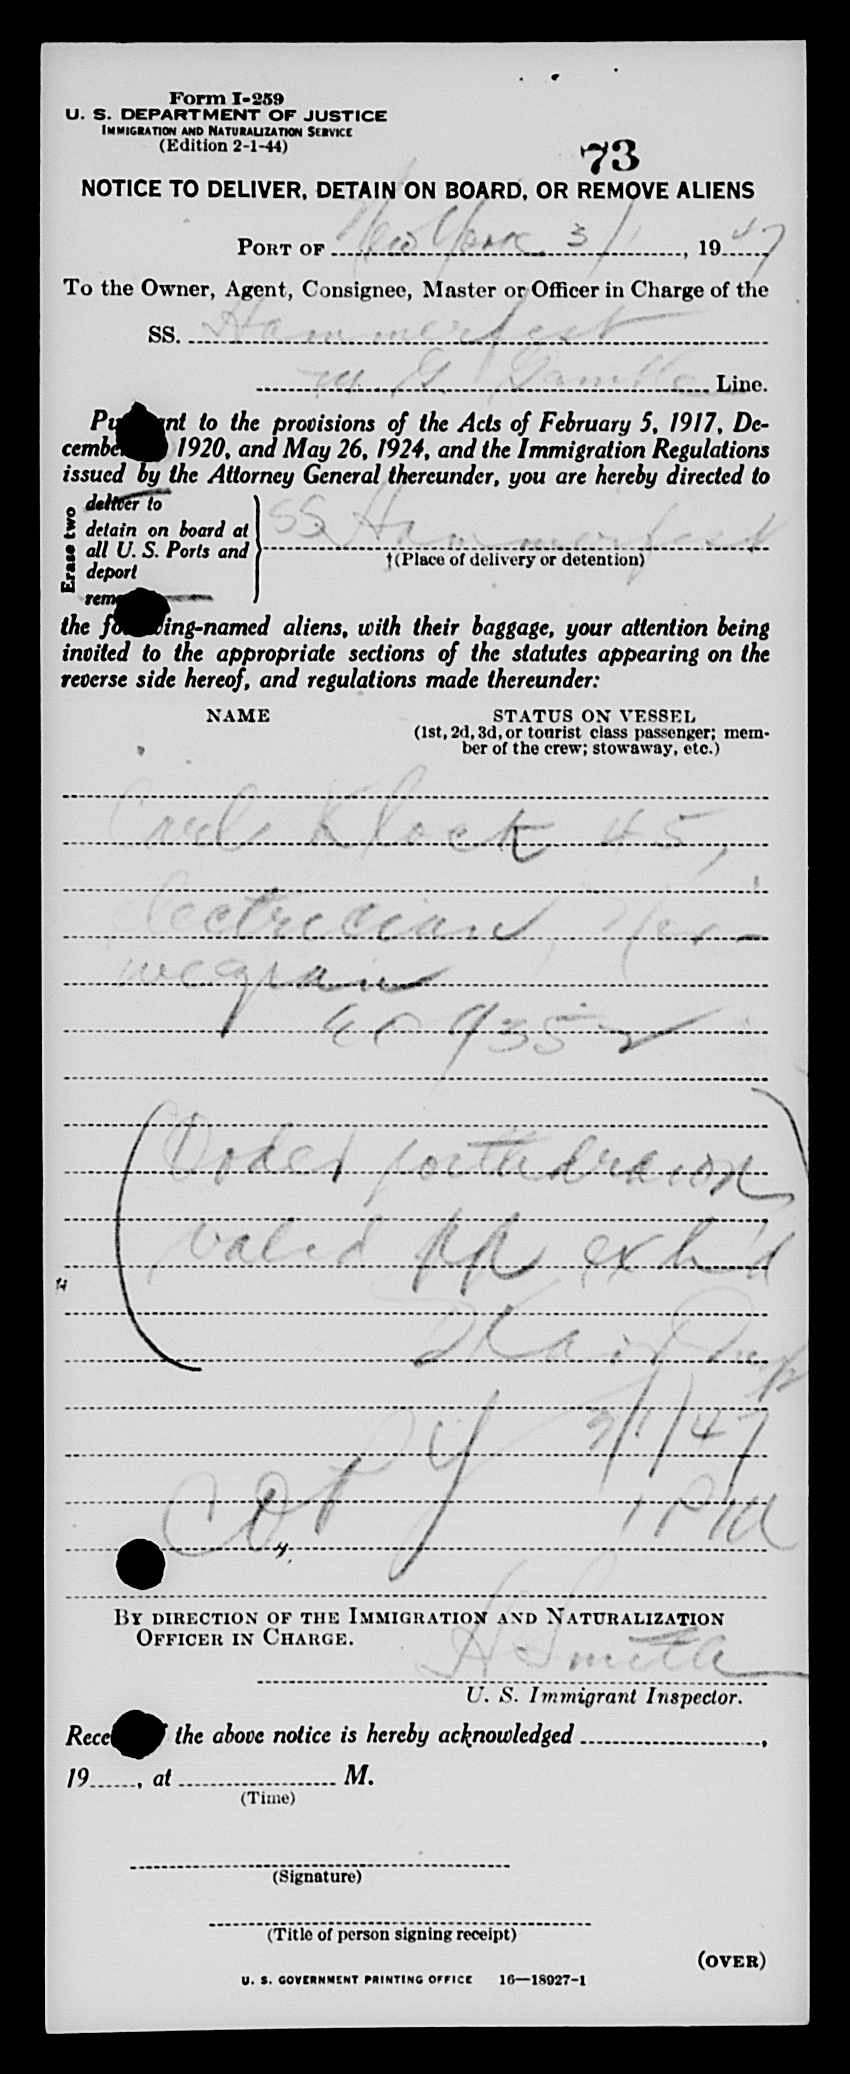 Form I-259
U. S. DEPARTMENT OF JUSTICE
IMMIGRATION AND NATURALIZATION SERVICE
(Edition 2-1-44)
73
NOTICE TO DELIVER, DETAIN ON BOARD, OR REMOVE ALIENS
PORT OF New York 3/1, 1947
To the Owner, Agent, Consignee, Master or Officer in Charge of the
SS. Hammerfest
Line.
Pursuant to the provisions of the Acts of February 5, 1917, De-
cember 1920, and May 26, 1924, and the Immigration Regulations
issued by the Attorney General thereunder, you are hereby directed to
Erase two
deliver to
detain on board at
all U. S. Ports and
deport
remove
SS Hammerfest
†(Place of delivery or detention)
the following-named aliens, with their baggage, your attention being
invited to the appropriate sections of the statutes appearing on the
reverse side hereof, and regulations made thereunder:
NAME
STATUS ON VESSEL
(1st, 2d, 3d, or tourist class passenger; mem-
ber of the crew; stowaway, etc.)
Carl Klock 45,
electrician, Nor-
wegian
935
valid pp exh'd
3/1/47
COPY 1 PM
BY DIRECTION OF THE IMMIGRATION AND NATURALIZATION
OFFICER IN CHARGE.
H Smith
U. S. Immigrant Inspector.
Receipt of the above notice is hereby acknowledged
19, at M.
(Time)
(Signature)
(Title of person signing receipt)
(OVER)
U. S. GOVERNMENT PRINTING OFFICE 16—18927-1